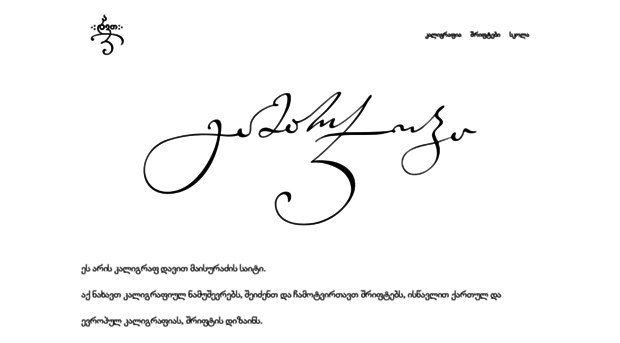 კალიგრაფია შრიფტები სკოლა
გამარჯობა
ეს არის კალიგრაფ დავით მაისურაძის საიტი.
აქ ნახავთ კალიგრაფიულ ნამუშევრებს, შეიძენთ და ჩამოტვირთავთ შრიფტებს, ისწავლით ქართულ და
ევროპულ კალიგრაფიას, შრიფტის დიზაინს.